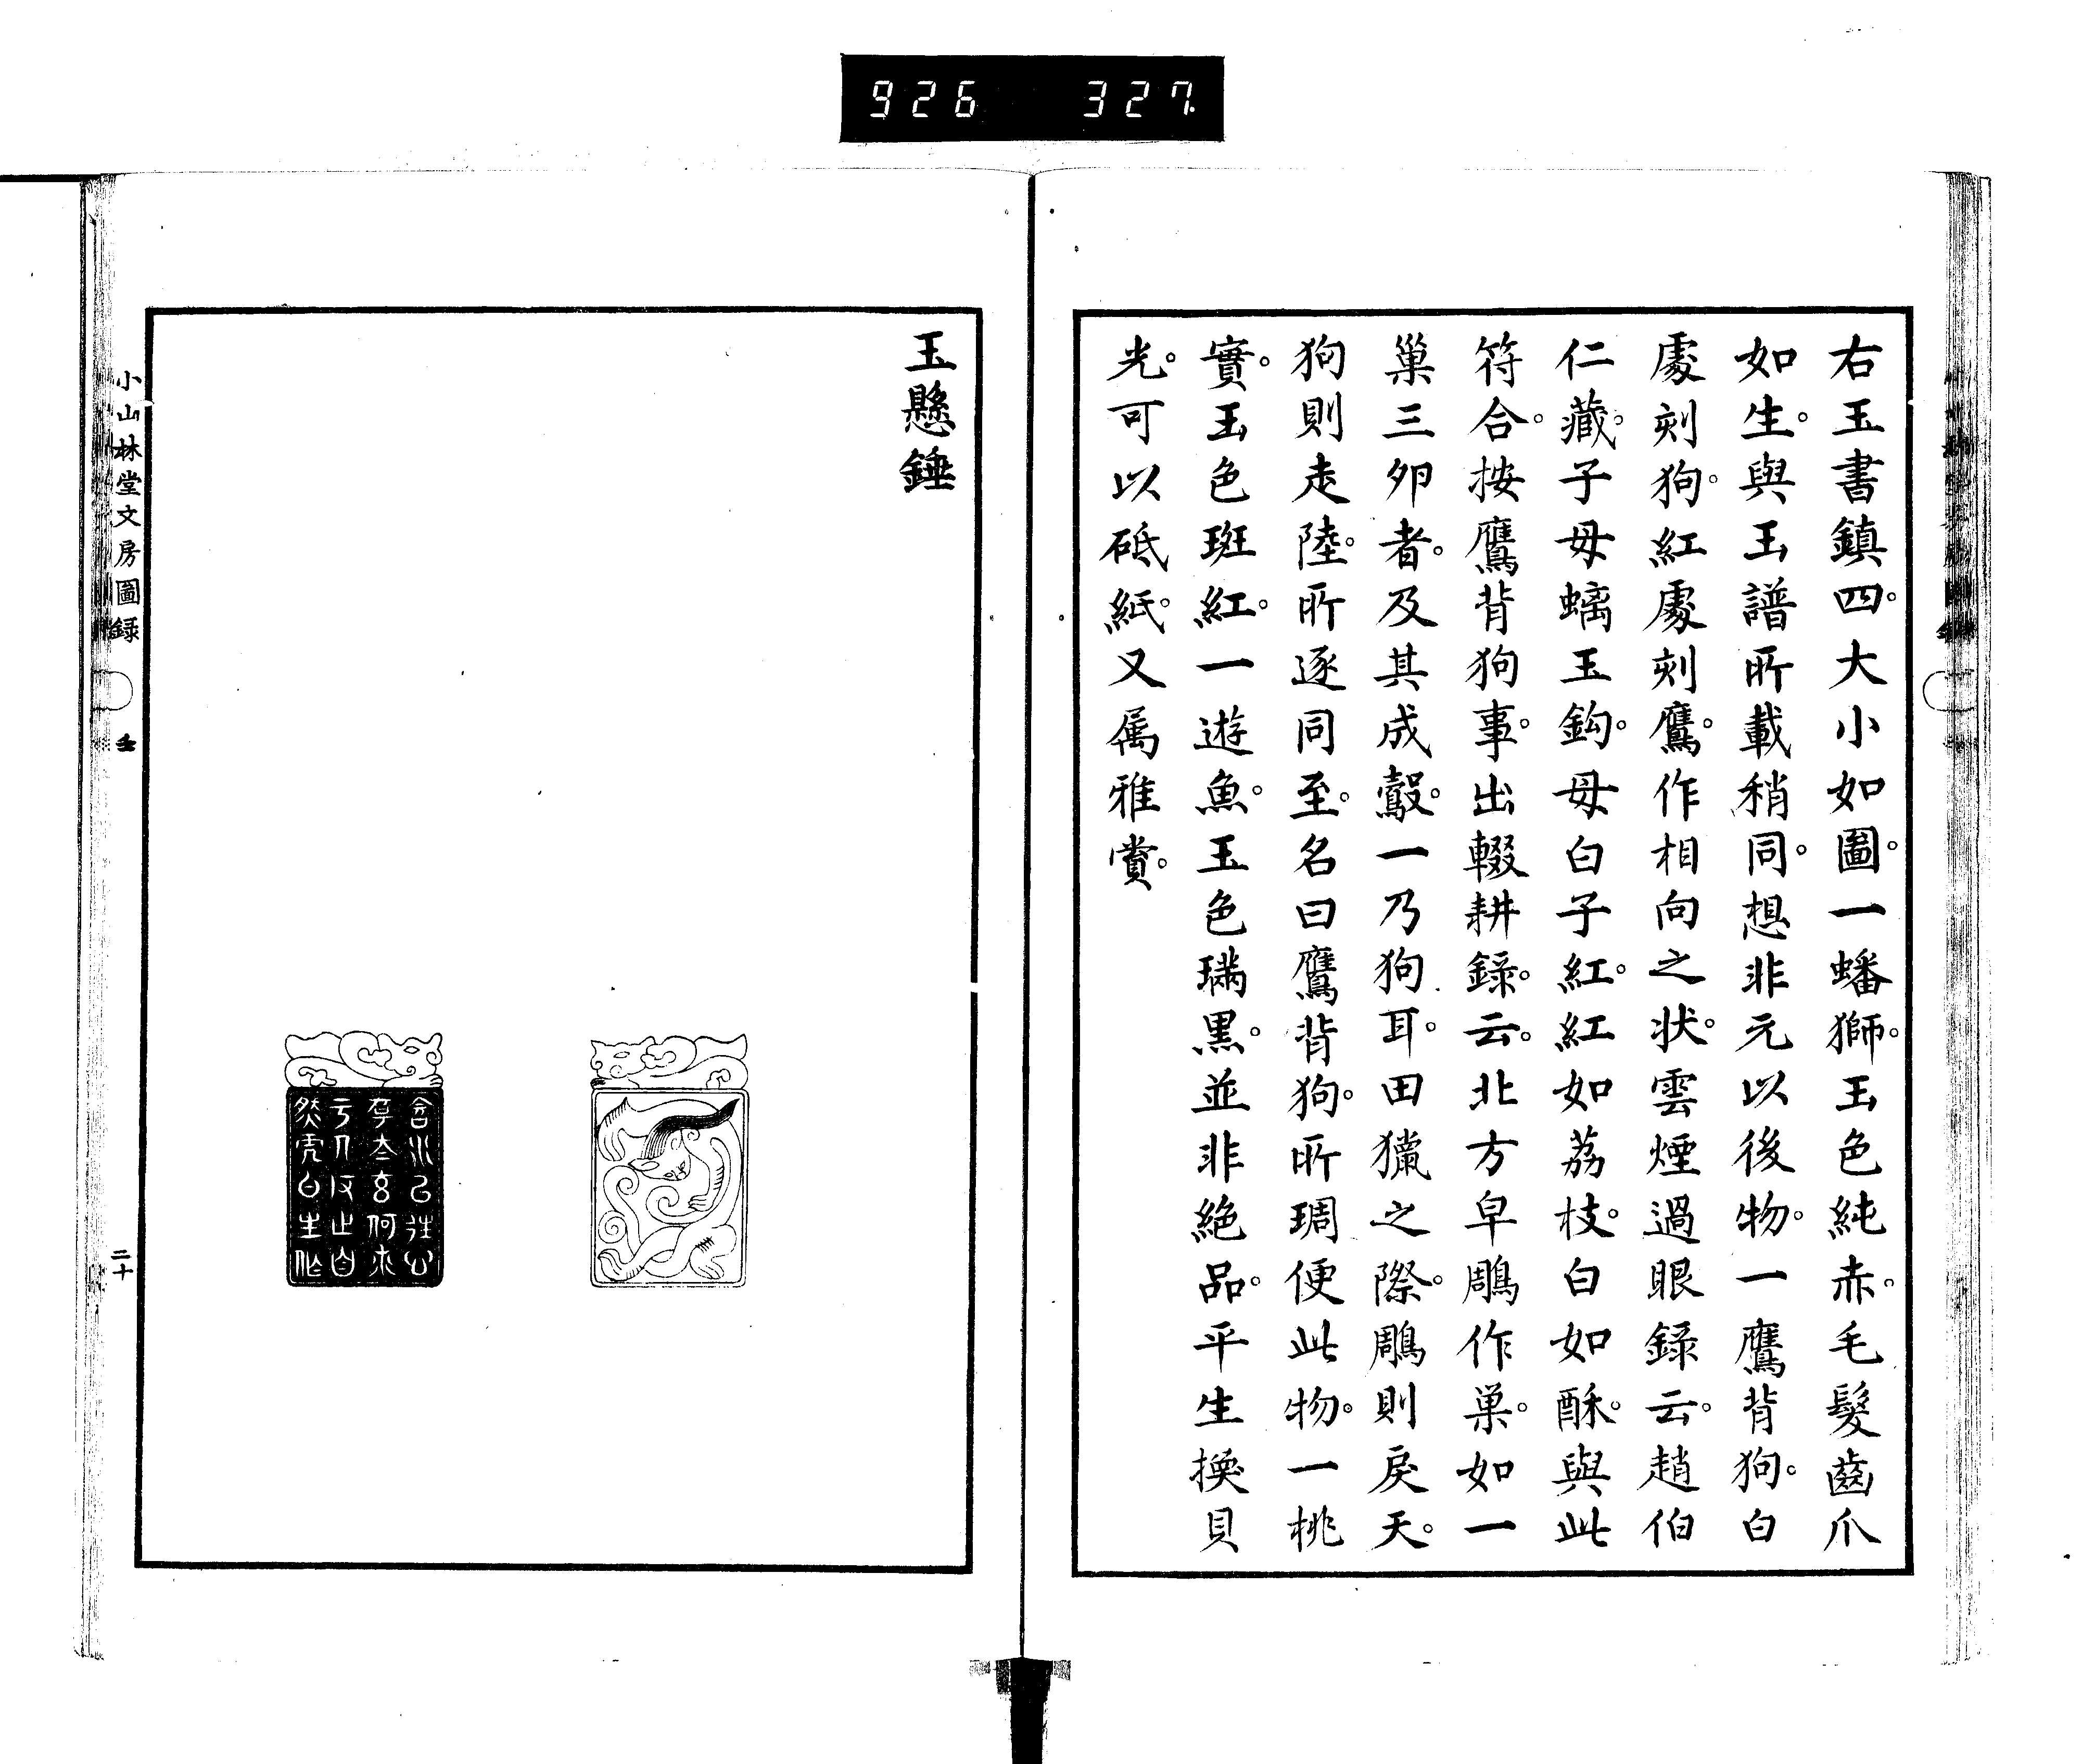 926 327
右玉書鎮四。大小如圖。一蟠獅。玉色純赤。毛髮齒爪
如生。與玉譜所載稍同。想非元以後物。一鷹背狗。白
處刻狗。紅處刻鷹。作相向之状。雲煙過眼錄云。趙伯
仁藏。子母螭玉鈎。母白子紅。紅如荔枝。白如酥。與此
符合。按鷹背狗事。出輟耕錄。云。北方皁鵰作巢。如一
巢三卵者。及其成鷇。一乃狗耳。田獵之際。鵰則戾天。
狗則走陸。所逐同至。名曰鷹背狗。所琱便此物。一桃
實。玉色斑紅。一遊魚。玉色璊黒。並非絶品。平生換貝
光。可以砥紙。又属雅賞。
玉懸錘
小山林堂文房圖録
二十